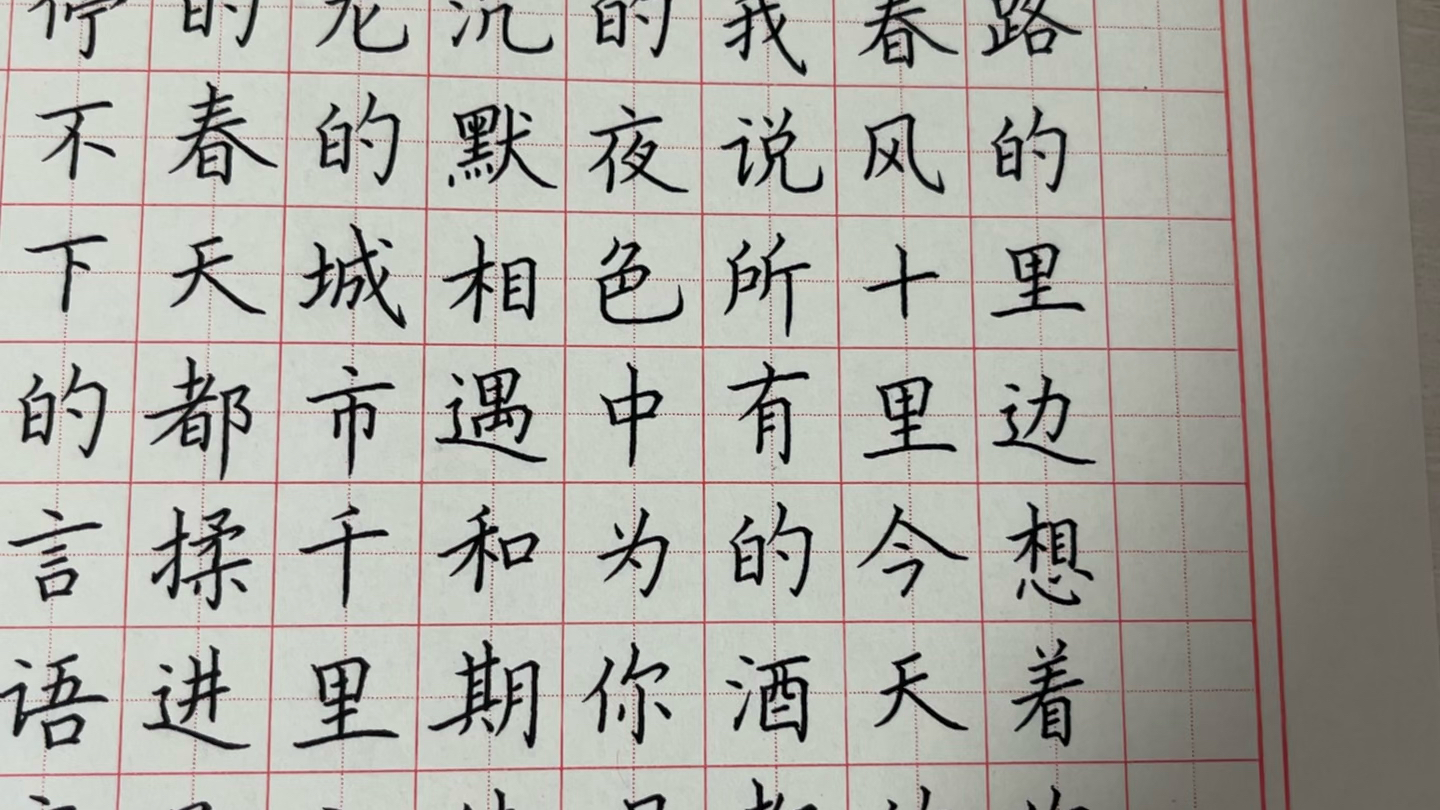 路的里边想着
春风十里今天
我说所有的酒
的夜色中为你
沉默相遇和期
的城市千里
的春天都揉进
停不下的言语